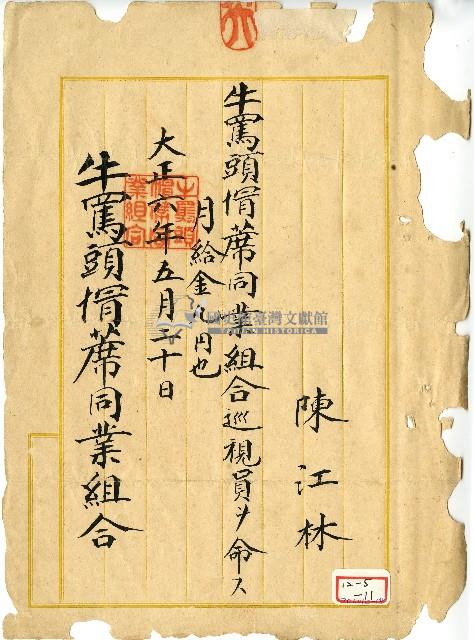 陳江林
牛罵頭帽蓆同業組合巡視員ヲ命ス
月給金九円也
大正六年五月二十日
牛罵頭帽蓆同業組合
牛罵頭
帽蓆同
業組合
國史館臺灣文獻館
TAIWAN HISTORICA
12-5
-11